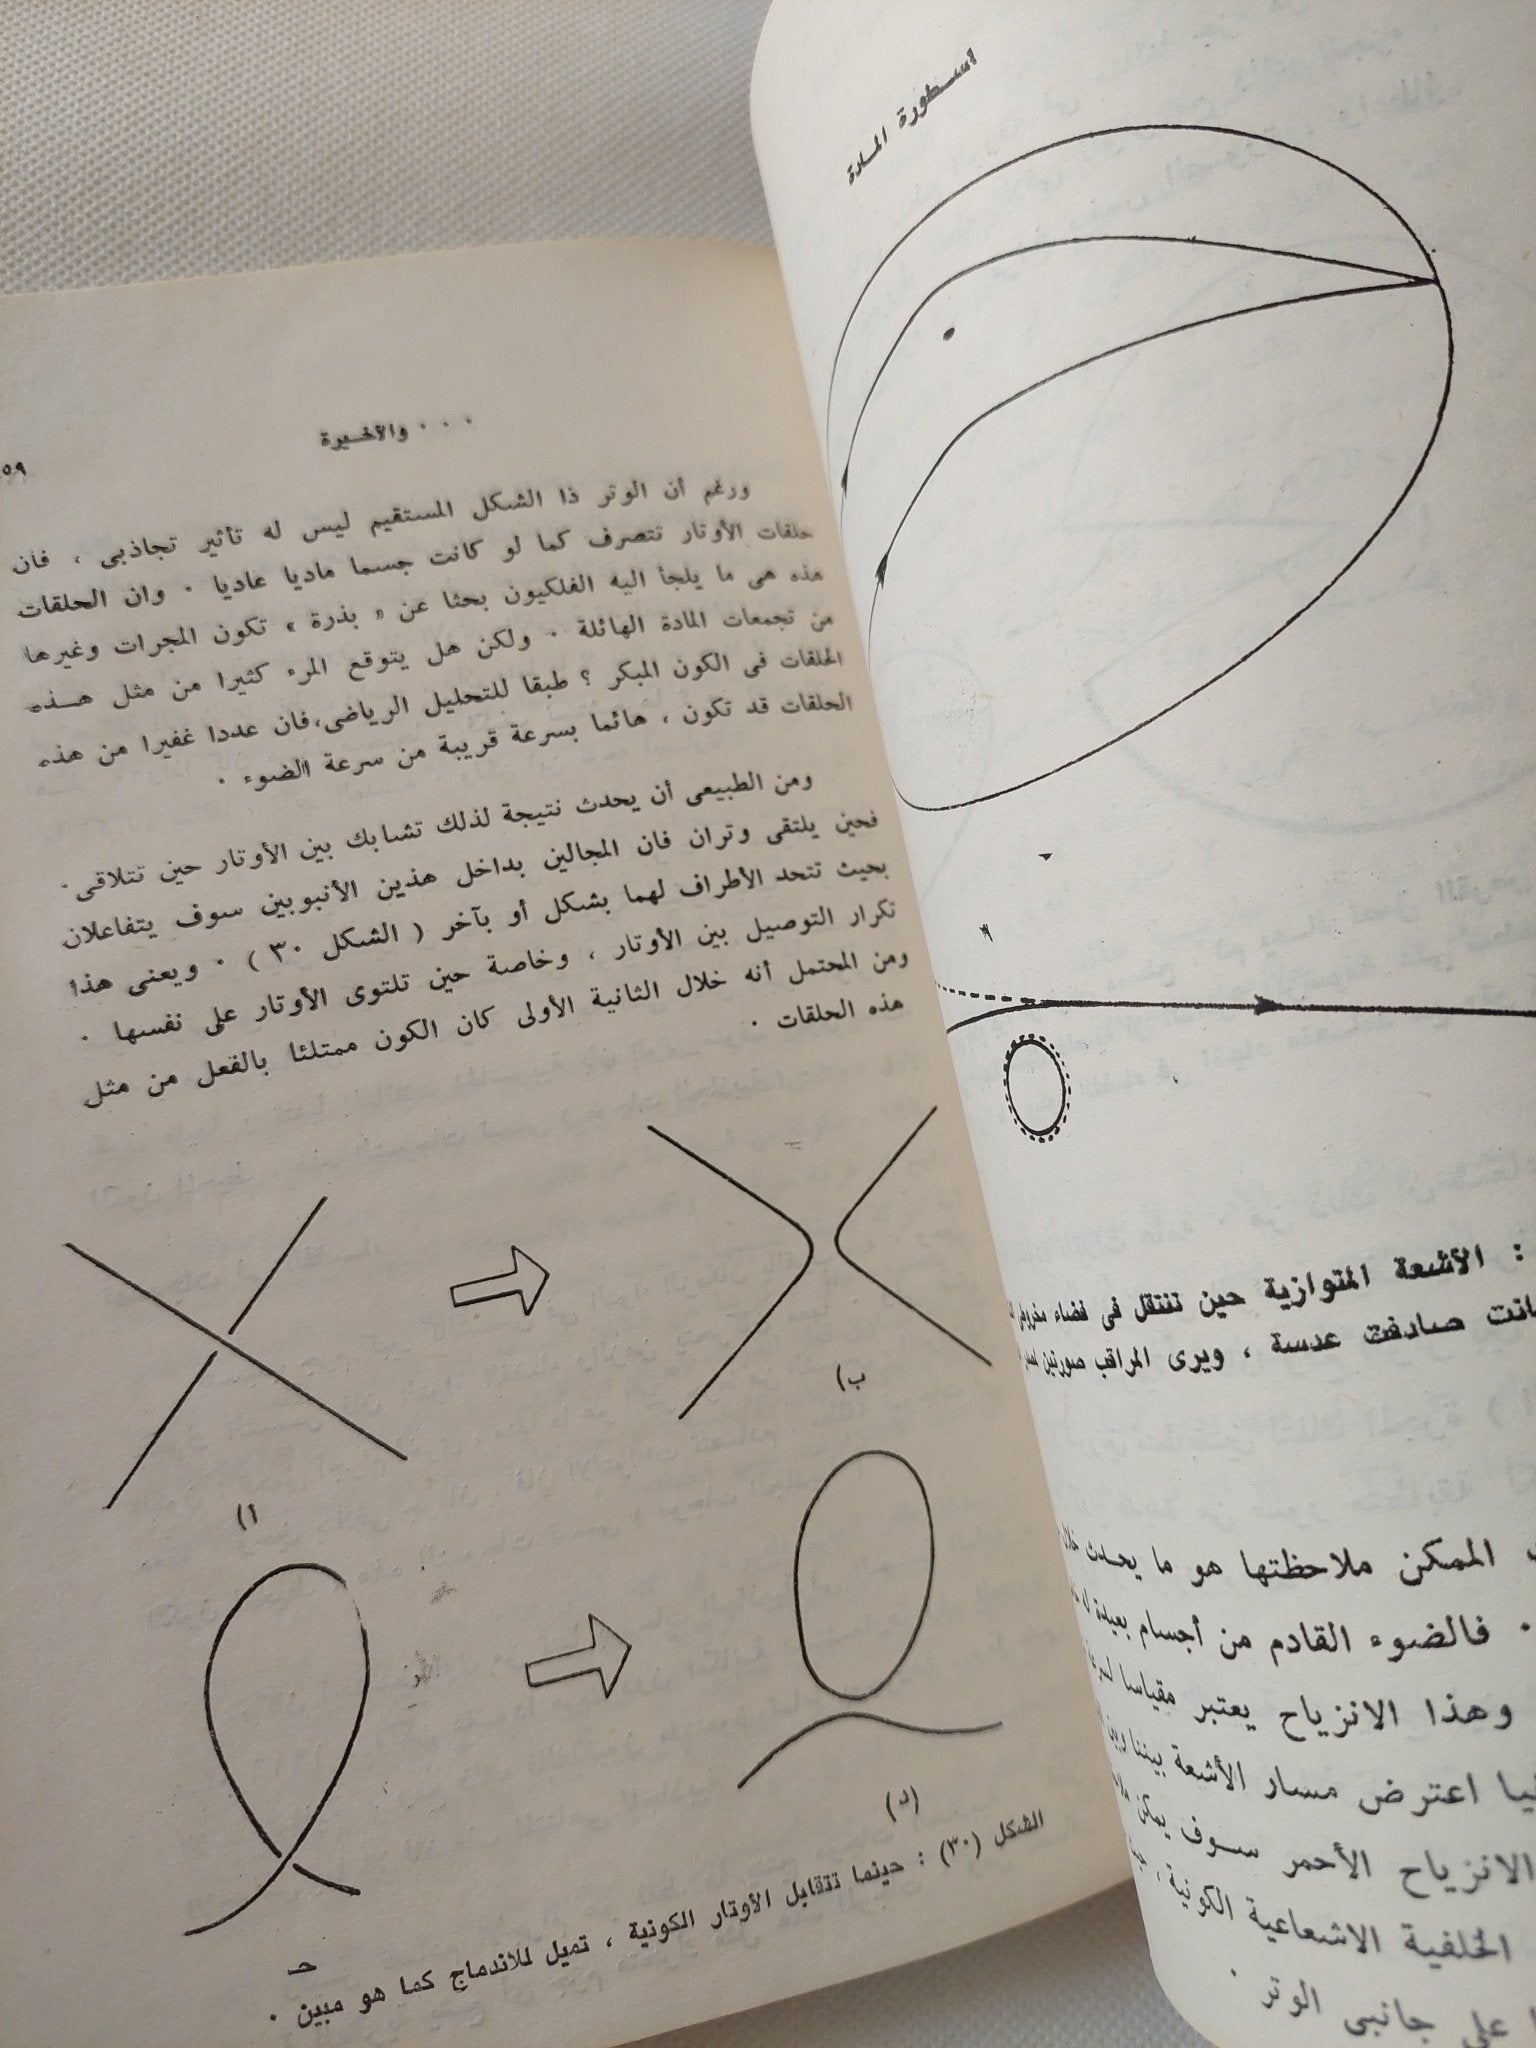 أسطورة المادة
: الأشعة المتوازية حين تنتقل فى فضاء
صادفت عدسة ، ويرى المراقب صورتين
الممكن ملاحظتها هو ما يحدث
. فالضوء القادم من أجسام بعيدة
وهذا الانزياح يعتبر مقياسا
اعترض مسار الأشعة بيننا
الانزياح الأحمر سوف يمكن
الخلفية الاشعاعية الكونية ،
على جانبى الوتر .
. . . والأخيرة
ورغم أن الوتر ذا الشكل المستقيم ليس له تأثير تجاذبى ، فان
حلقات الأوتار تتصرف كما لو كانت جسما ماديا عاديا . وان الحلقات
هذه هى ما يلجأ اليه الفلكيون بحثا عن « بذرة » تكون المجرات وغيرها
من تجمعات المادة الهائلة . ولكن هل يتوقع المرء كثيرا من مثل هذه
الحلقات فى الكون المبكر ؟ طبقا للتحليل الرياضى،فان عددا غفيرا من هذه
الحلقات قد تكون ، هائما بسرعة قريبة من سرعة الضوء .
ومن الطبيعى أن يحدث نتيجة لذلك تشابك بين الأوتار حين تتلاقى.
فحين يلتقى وتران فان المجالين بداخل هذين الأنبوبين سوف يتفاعلان
بحيث تتحد الأطراف لهما بشكل أو بآخر ( الشكل ٣٠ ) . ويعنى هذا
تكرار التوصيل بين الأوتار ، وخاصة حين تلتوى الأوتار على نفسها .
ومن المحتمل أنه خلال الثانية الأولى كان الكون ممتلئا بالفعل من مثل
هذه الحلقات .
ا)
ب)
حـ
(د)
الشكل (٣٠) : حينما تتقابل الأوتار الكونية ، تميل للاندماج كما هو مبين .